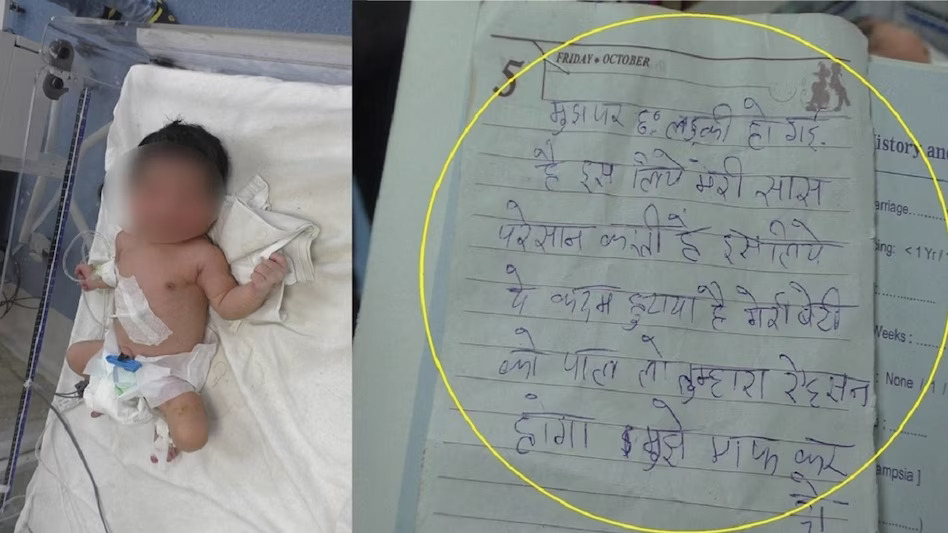 5
FRIDAY • OCTOBER
मुझ पर छः लड़की हो गई.
है इस लिये मेरी सास
परेसान करती है इसलिये
ये कदम हुटाया है मेरी बेटी
को पाल लो तुम्हारा
होगा मुझे माफ कर
दो
istory and
arriage......
ing: < 1 Yr /
Weeks : .....
: None / 1 /
ampsia ]